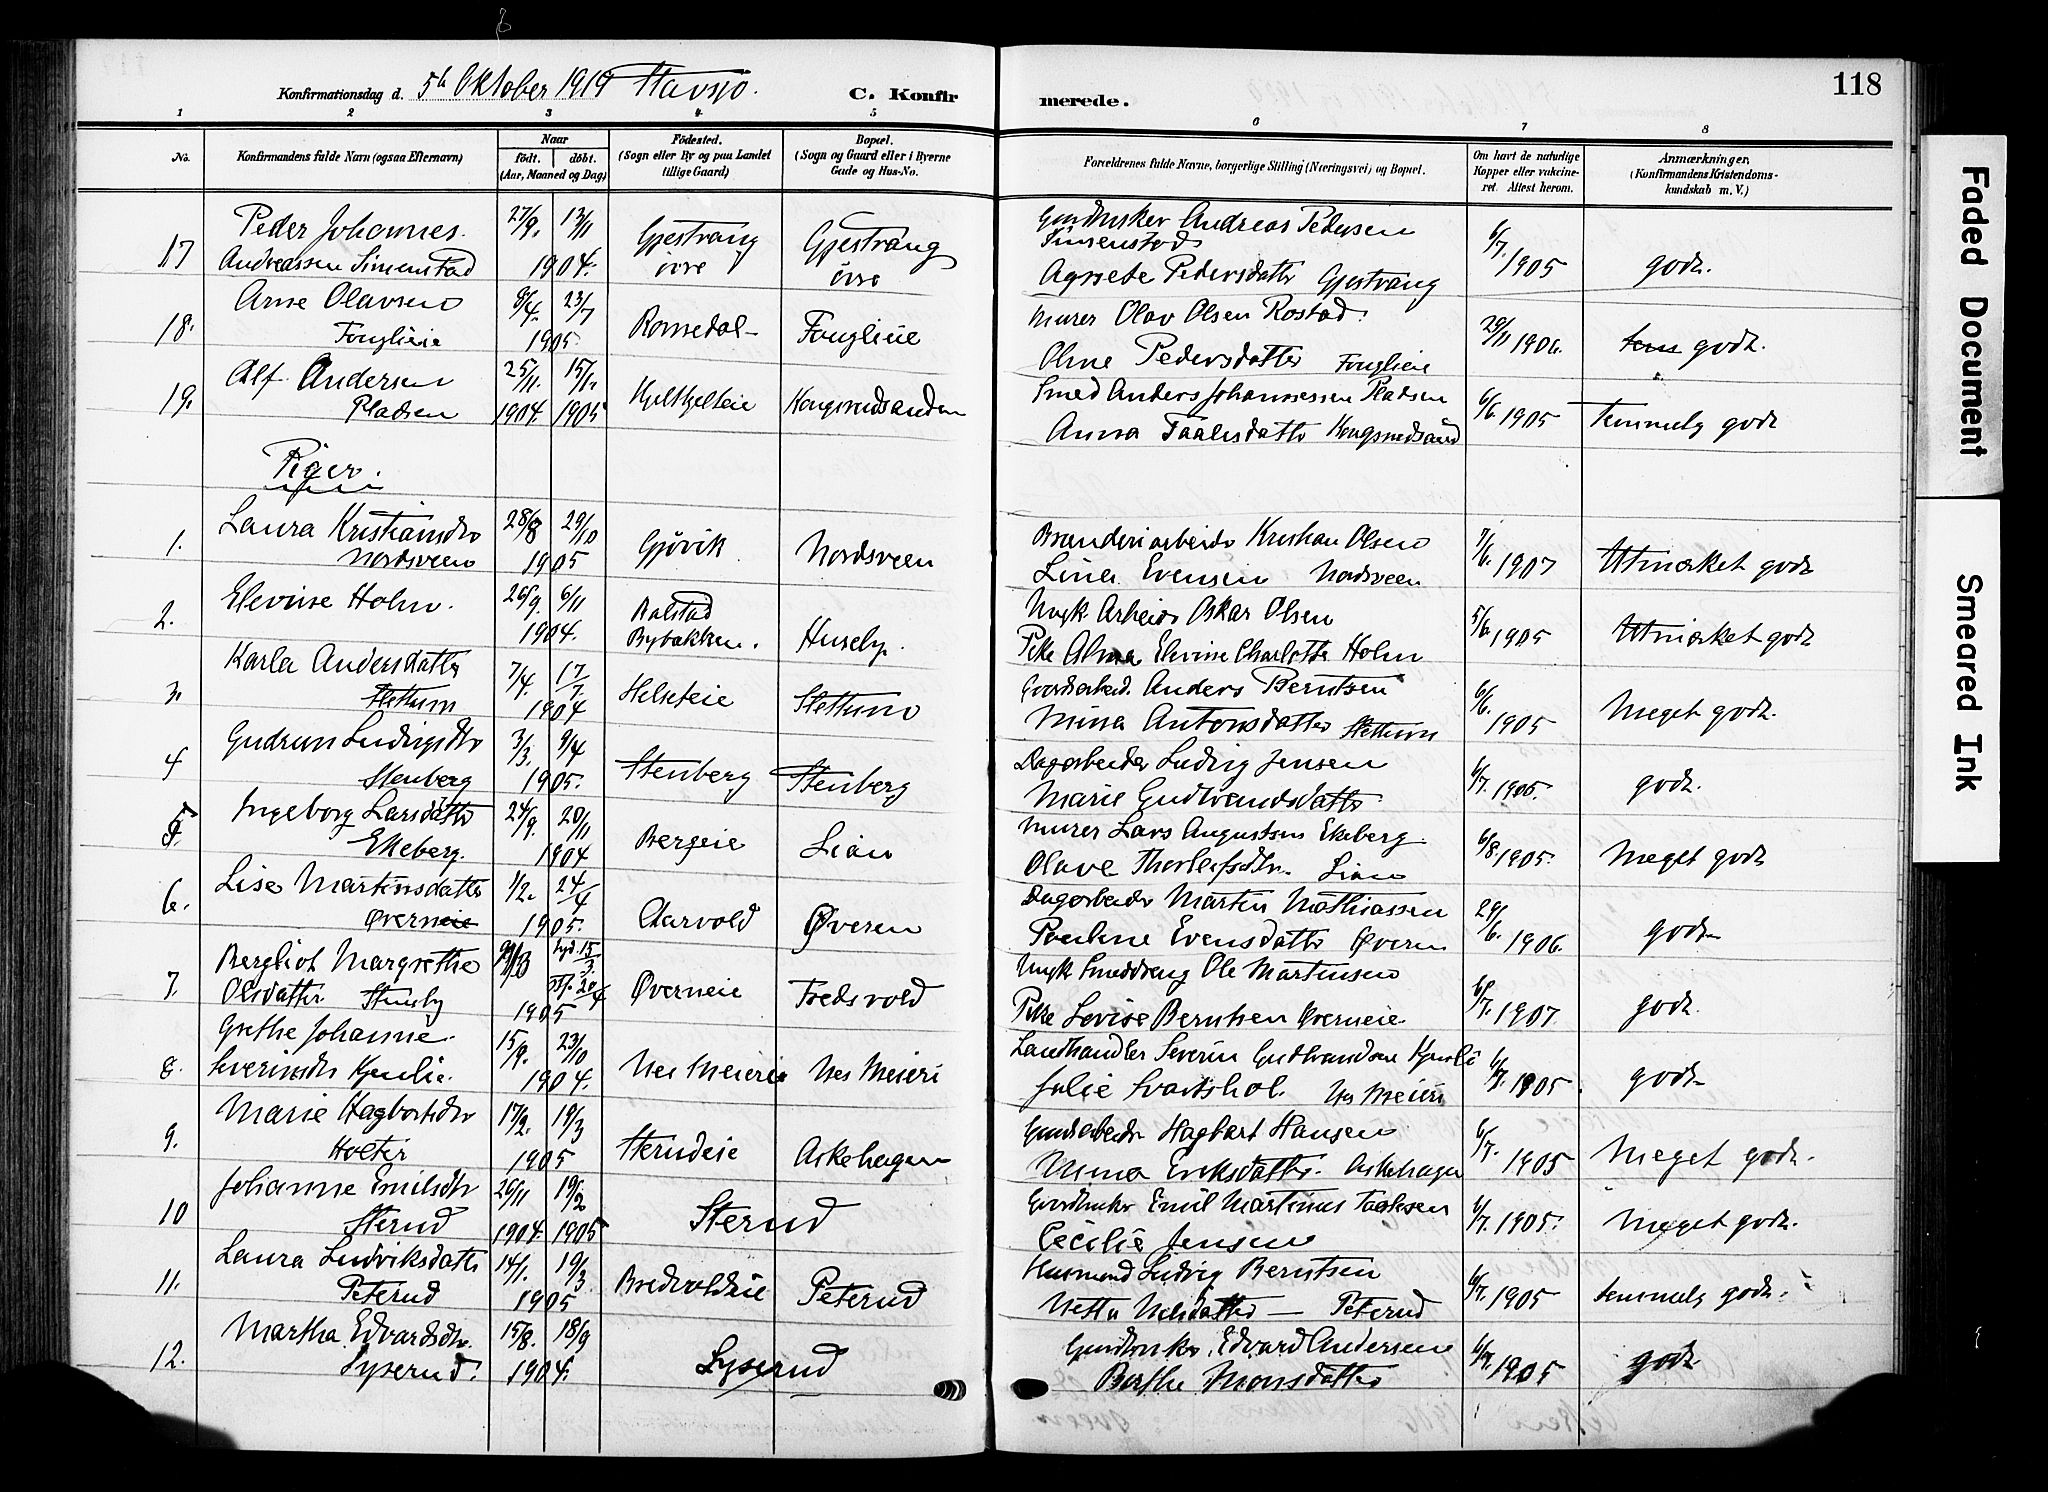 118
Konfirmationsdag d. 5h Oktober 1919 Stavsjö.
C. Konfirmerede.
1 2 3 4. 5 6 7 8
No.
Konfirmandens fulde Navn (ogsaa Efternavn)
Naar
födt. döbt.
(Aar, Maaned og Dag)
Födested.
(Sogn eller By og paa Landet
tillige Gaard)
Bopæl.
(Sogn og Gaard eller i Byerne
Gade og Hus-No.
Forældrenes fulde Navne, borgerlige Stilling (Næringsvei) og Bopæl.
Om havt de naturlige
Kopper eller vakcine-
ret. Attest herom.
Anmærkninger.
(Konfirmandens Kristendoms-
kundskab m. V.)
17 Peder Johannes 27/9. 13/11 Gjestvang Gjestvang Gaardbruker Andreas Pedersen 6/7. 1905 godt.
Andreassen Simenstad 1904. övre övre Simenstad
Agnete Pedersdatter Gjestvang
18. Arne Olavsen 8/4. 23/7 Romedal Fouglieie Murer Olav Olsen Rostad. 29/11 1906. godt.
Fouglieie 1905. Oline Pedersdatter Fouglieie
19. Alf Andersen 25/11. 15/1. Smed Anders Johannessen Pladsen 6/6. 1905 Temmelig godt
Pladsen 1904. 1905 Anna
Piger.
1. Laura Kristiansdtr 28/8 29/10 Gjövik Nordsveen Brenderiarbeider Kristian Olsen 7/6. 1907 Utmærket godt
Nordsveen 1905 Lina Evensen Nordsveen
2. Elevine Holm. 26/9. 6/11 Balstad Huseby. Ungk. Arbeider Oskar Olsen 5/6. 1905 Utmærket godt
1904. Bybakken. Pike Alma Elevine Charlotte Holm
3. Karla Andersdatter 7/4. 17/7 Helseteie Stettum Gaardsarbeid. Anders Berntsen 6/6. 1905 Meget godt.
Stettum 1904 Mina Antonsdatter Stettum
4 Gudrun Ludvigsdtr 3/3. 9/4 Stenberg Stenberg Dagarbeider Ludvig Jensen 6/7. 1905. godt.
Stenberg 1905. Marie Gudbrandsdatter
5. Ingeborg Larsdatter 24/9. 20/11 Bergeie Lian Murer Lars Augustsen Ekeberg 6/8. 1905. Meget godt
Ekeberg. 1904 Olave Thorleifsdtr. Lian
6. Lise Martinsdatter 1/2. 24/4 Aarvold Øveren Dagarbeider Martin Mathiassen 29/6. 1906. godt
Øverneie 1905. Pauline Evensdatter Øveren
7. Bergliot Margrethe Øverneie Fredsvold Ungk. Smeddreng Ole Martinsen 6/7. 1907. godt.
Olsdatter Stensby 1905 Pike Lovise Berntsen Øverneie
8. Grethe Johanne 15/9. 23/10 Nes Meieri Nes Meieri Landhandler Severin Gudbrandsen Kjenlie 6/7. 1905. godt
Severinsdtr Kjenlie. 1904. Julie Svartshol. Nes Meieri
9. Marie Hagbartsdtr 17/2. 19/3 Sterudeie Askehagen Gaardsarbeider Hagbart Hansen 6/7. 1905 Meget godt.
Holter 1905 Mina Eriksdatter. Askehagen
10 Johanne Emilsdtr 26/11 19/2 Sterud Gaardbruker Emil Martinus Isaksen 6/7. 1905. Meget godt.
Sterud 1904. 1905 Cecilie Jensen
11. Laura Ludviksdatter 14/1. 19/3 Bredvoldeie Peterud Husmand Ludvig Berntsen 6/7. 1905 temmelig godt.
Peterud 1905 Netta Nilsdatter — Peterud
12. Martha Edvardsdtr. 15/8. 18/9 Lyserud Gaardbruker. Edvard Andersen 6/7. 1905 godt
Lyserud. 1904. Berthe Monsdatter
Faded Document
Smeared Ink